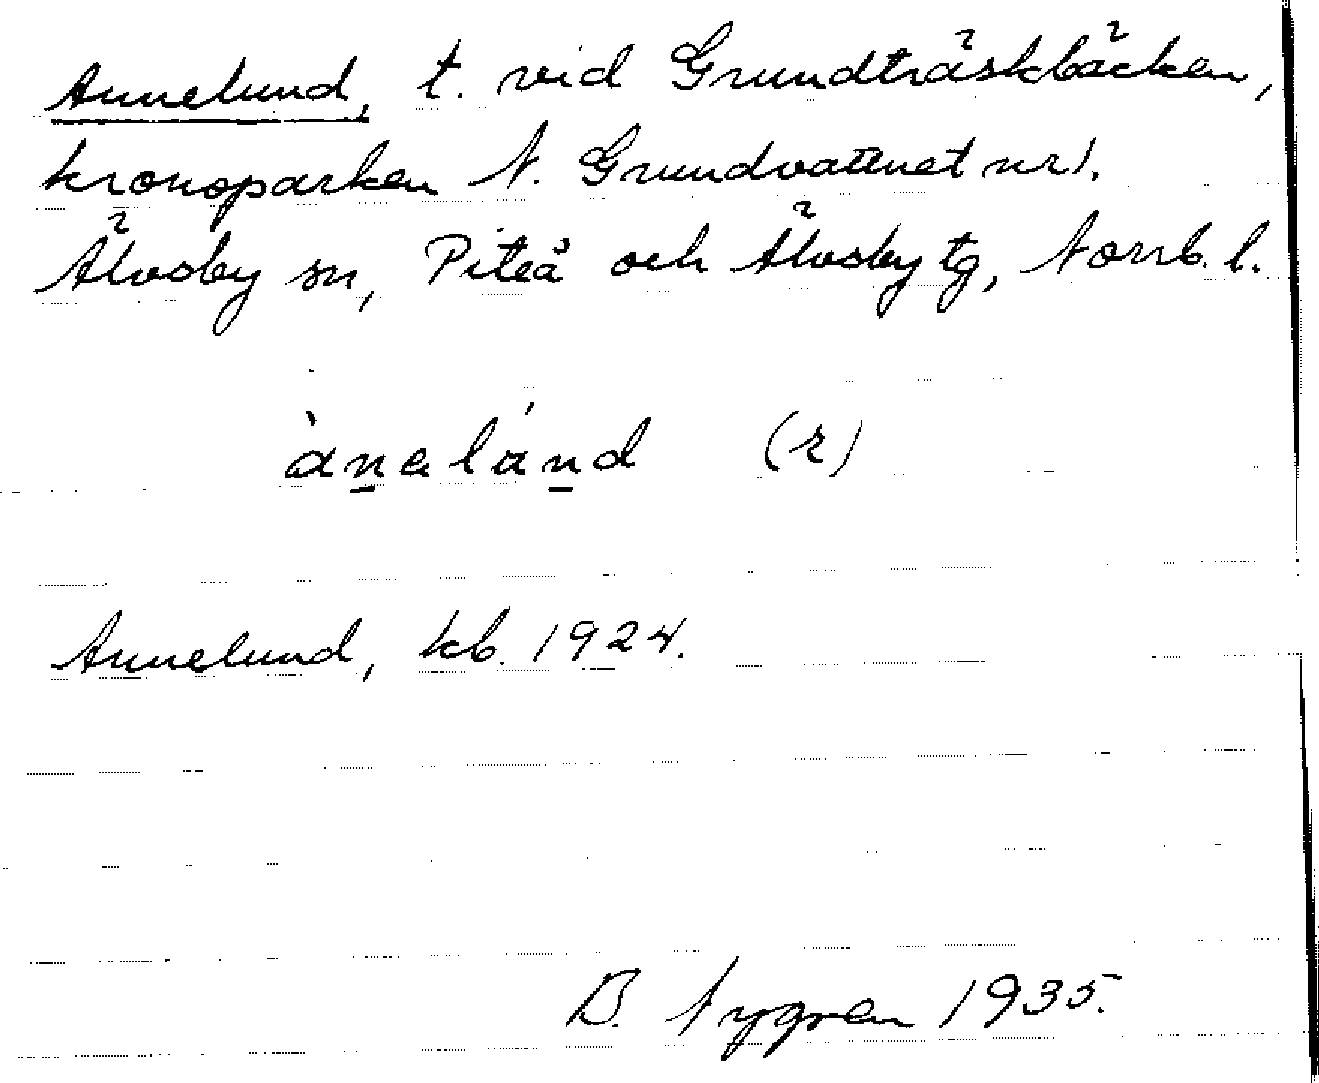 Annelund, t. vid Grundträskbäcken,
kronoparken N. Grundvattnet nr 1.
Älvsby sn, Piteå och Älvsby tg, Norrb. l.
ànalánd (r)
Annelund, kb. 1924.
B. Nygren 1935.